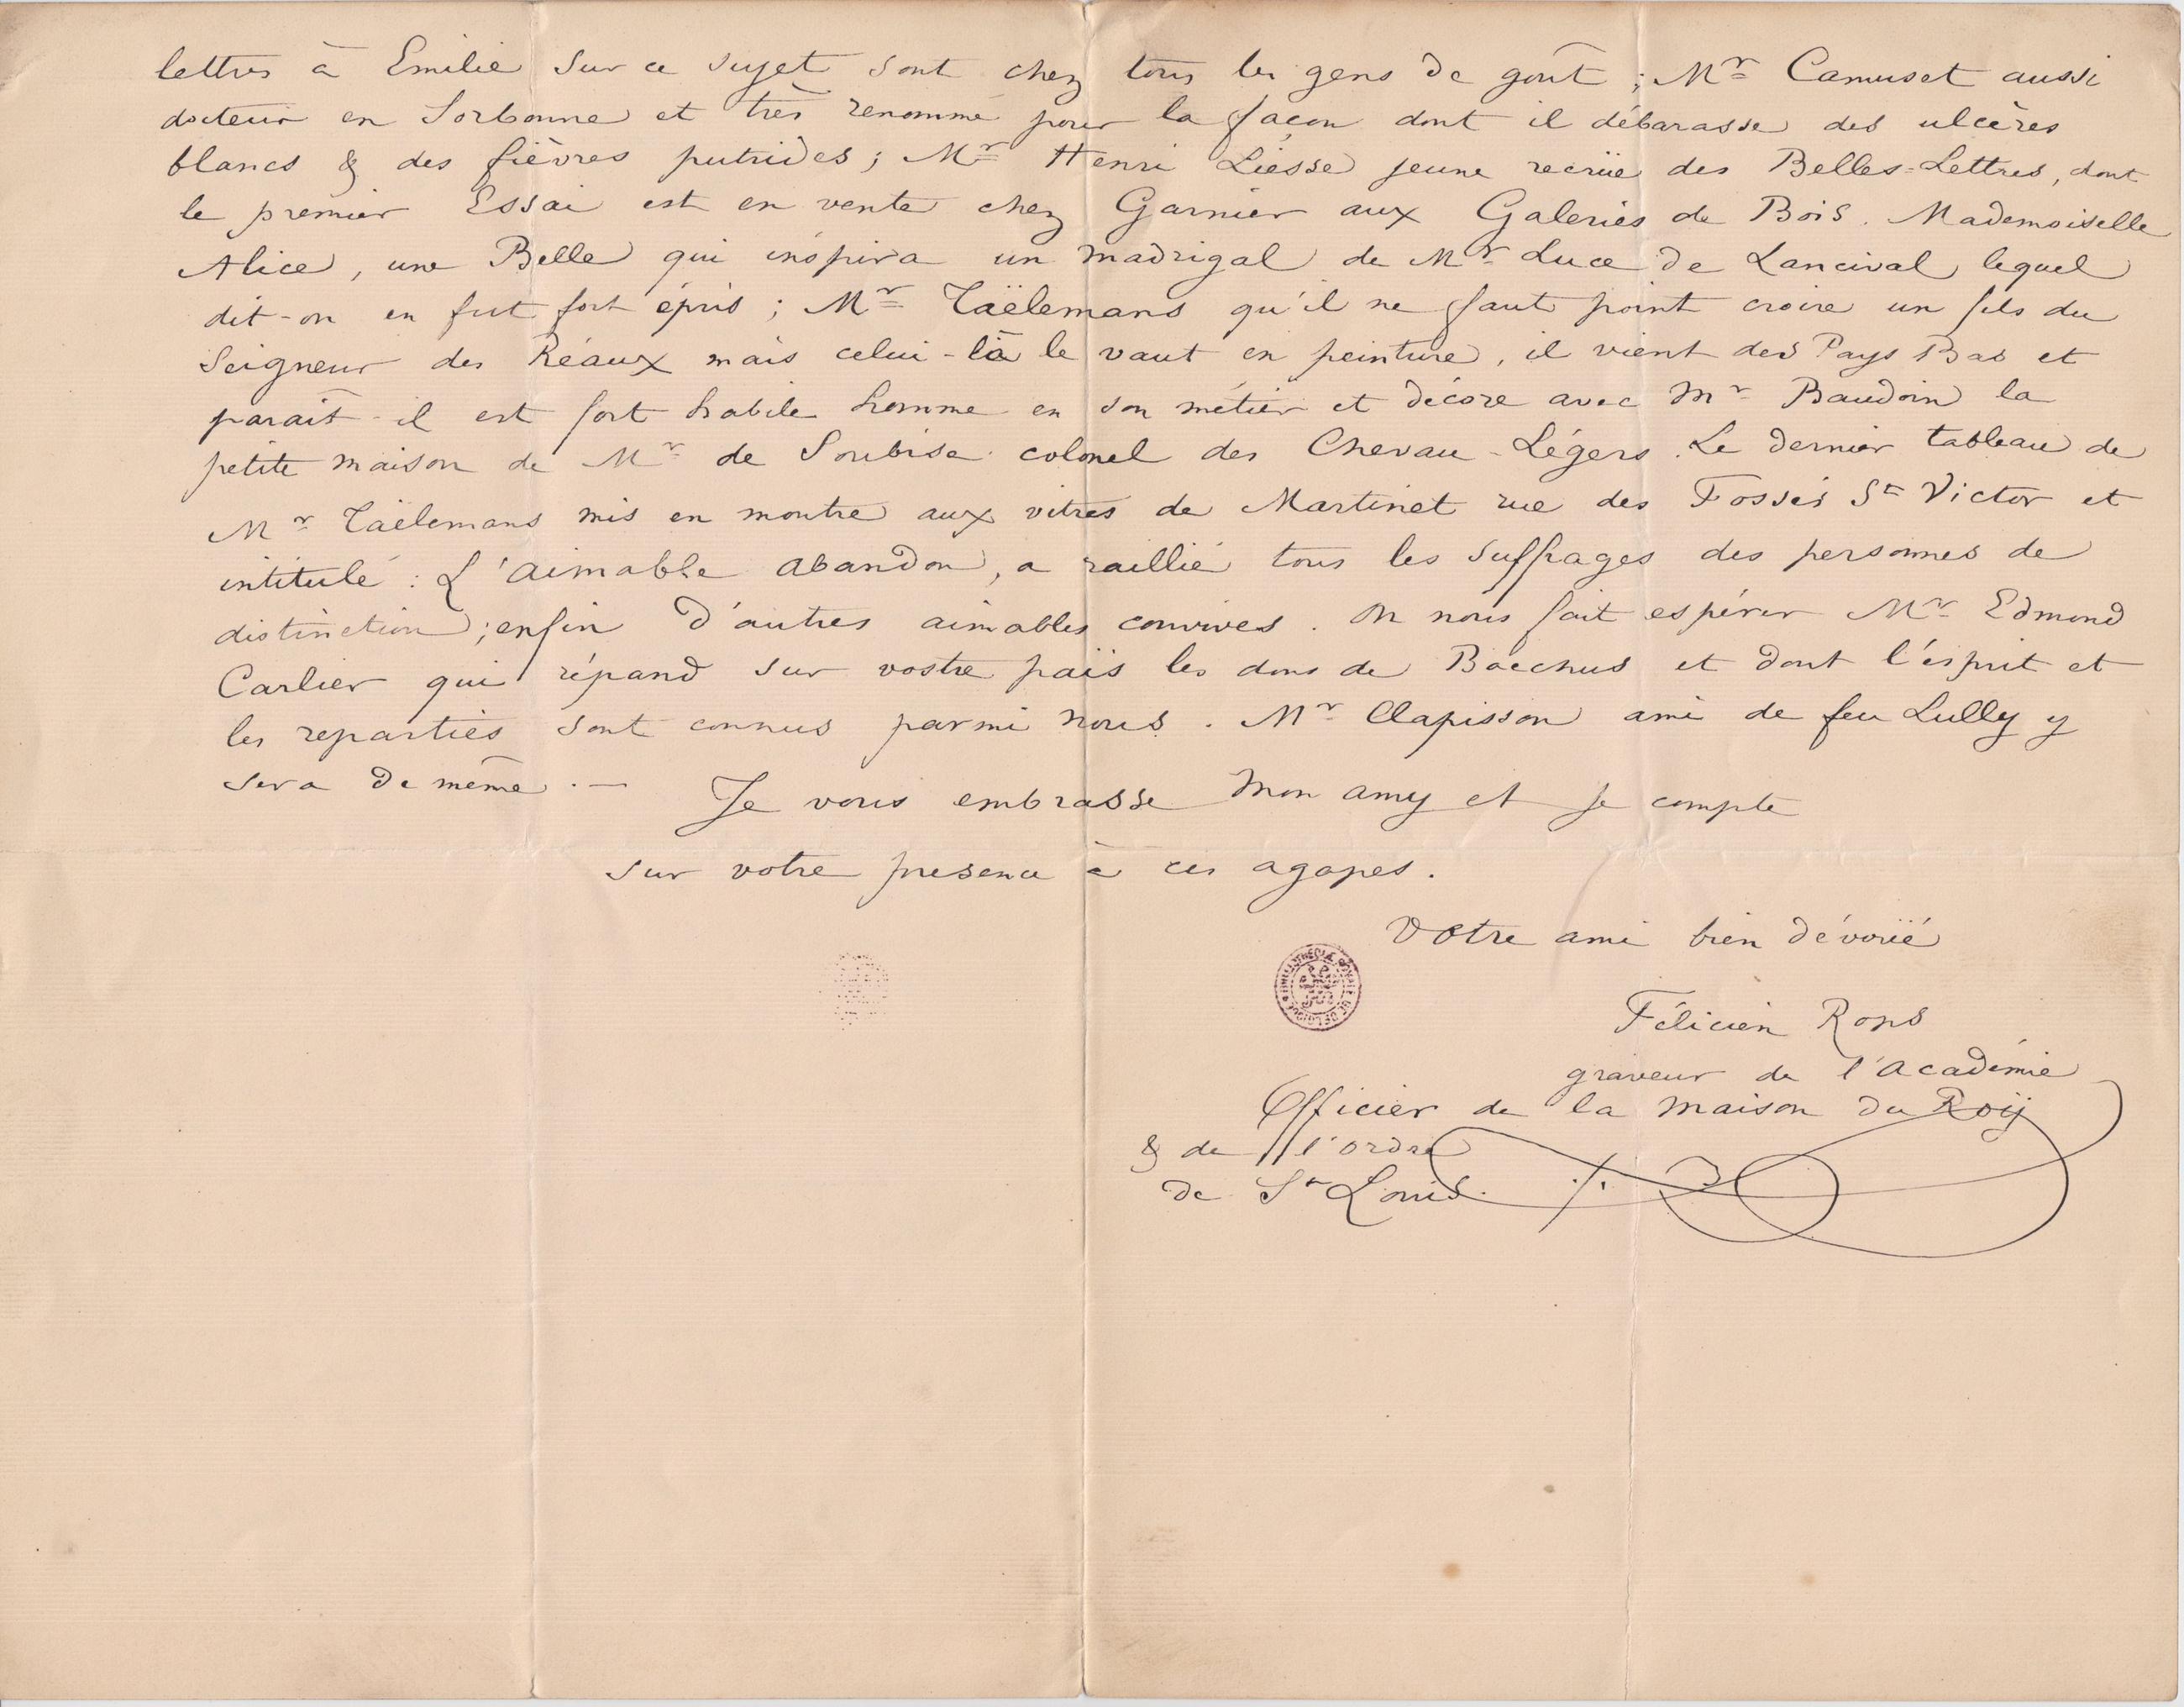 lettres à Emilie sur ce sujet sont chez tous les gens de goût ; Mr Camuset aussi
docteur en Sorbonne et très renommé pour la façon dont il débarasse des ulcères
blancs & des fièvres putrides ; Mr Henri Liesse jeune recrüe des Belles-Lettres, dont
le premier Essai est en vente chez Garnier aux Galeries de Bois. Mademoiselle
Alice, une Belle qui inspira un madrigal de Mr Luce de Lancival lequel
dit-on en fut fort épris ; Mr Taëlemans qu'il ne faut point croire un fils du
Seigneur des Réaux mais celui-là le vaut en peinture, il vient des Pays Bas et
paraît-il est fort habile homme en son métier et décore avec Mr Baudoin la
petite maison de Mr de Soubise colonel des Chevau-Légers. Le dernier tableau de
Mr Taëlemans mis en montre aux vitres de Martinet rue des Fossés St Victor et
intitulé : L'aimable abandon, a raillié tous les suffrages des personnes de
distinction ; enfin d'autres aimables convives. On nous fait espérer Mr Edmond
Carlier qui répand sur vostre païs les dons de Bacchus et dont l'esprit et
les reparties sont connus parmi nous. Mr Clapisson ami de feu Lully y
sera de même. —
Je vous embrasse mon amy et je compte
sur votre presence à ces agapes.
Votre ami bien dévoüé
Félicien Rops
graveur de l'académie
Officier de la maison du Roÿ
& de l'ordre
de St Louis.